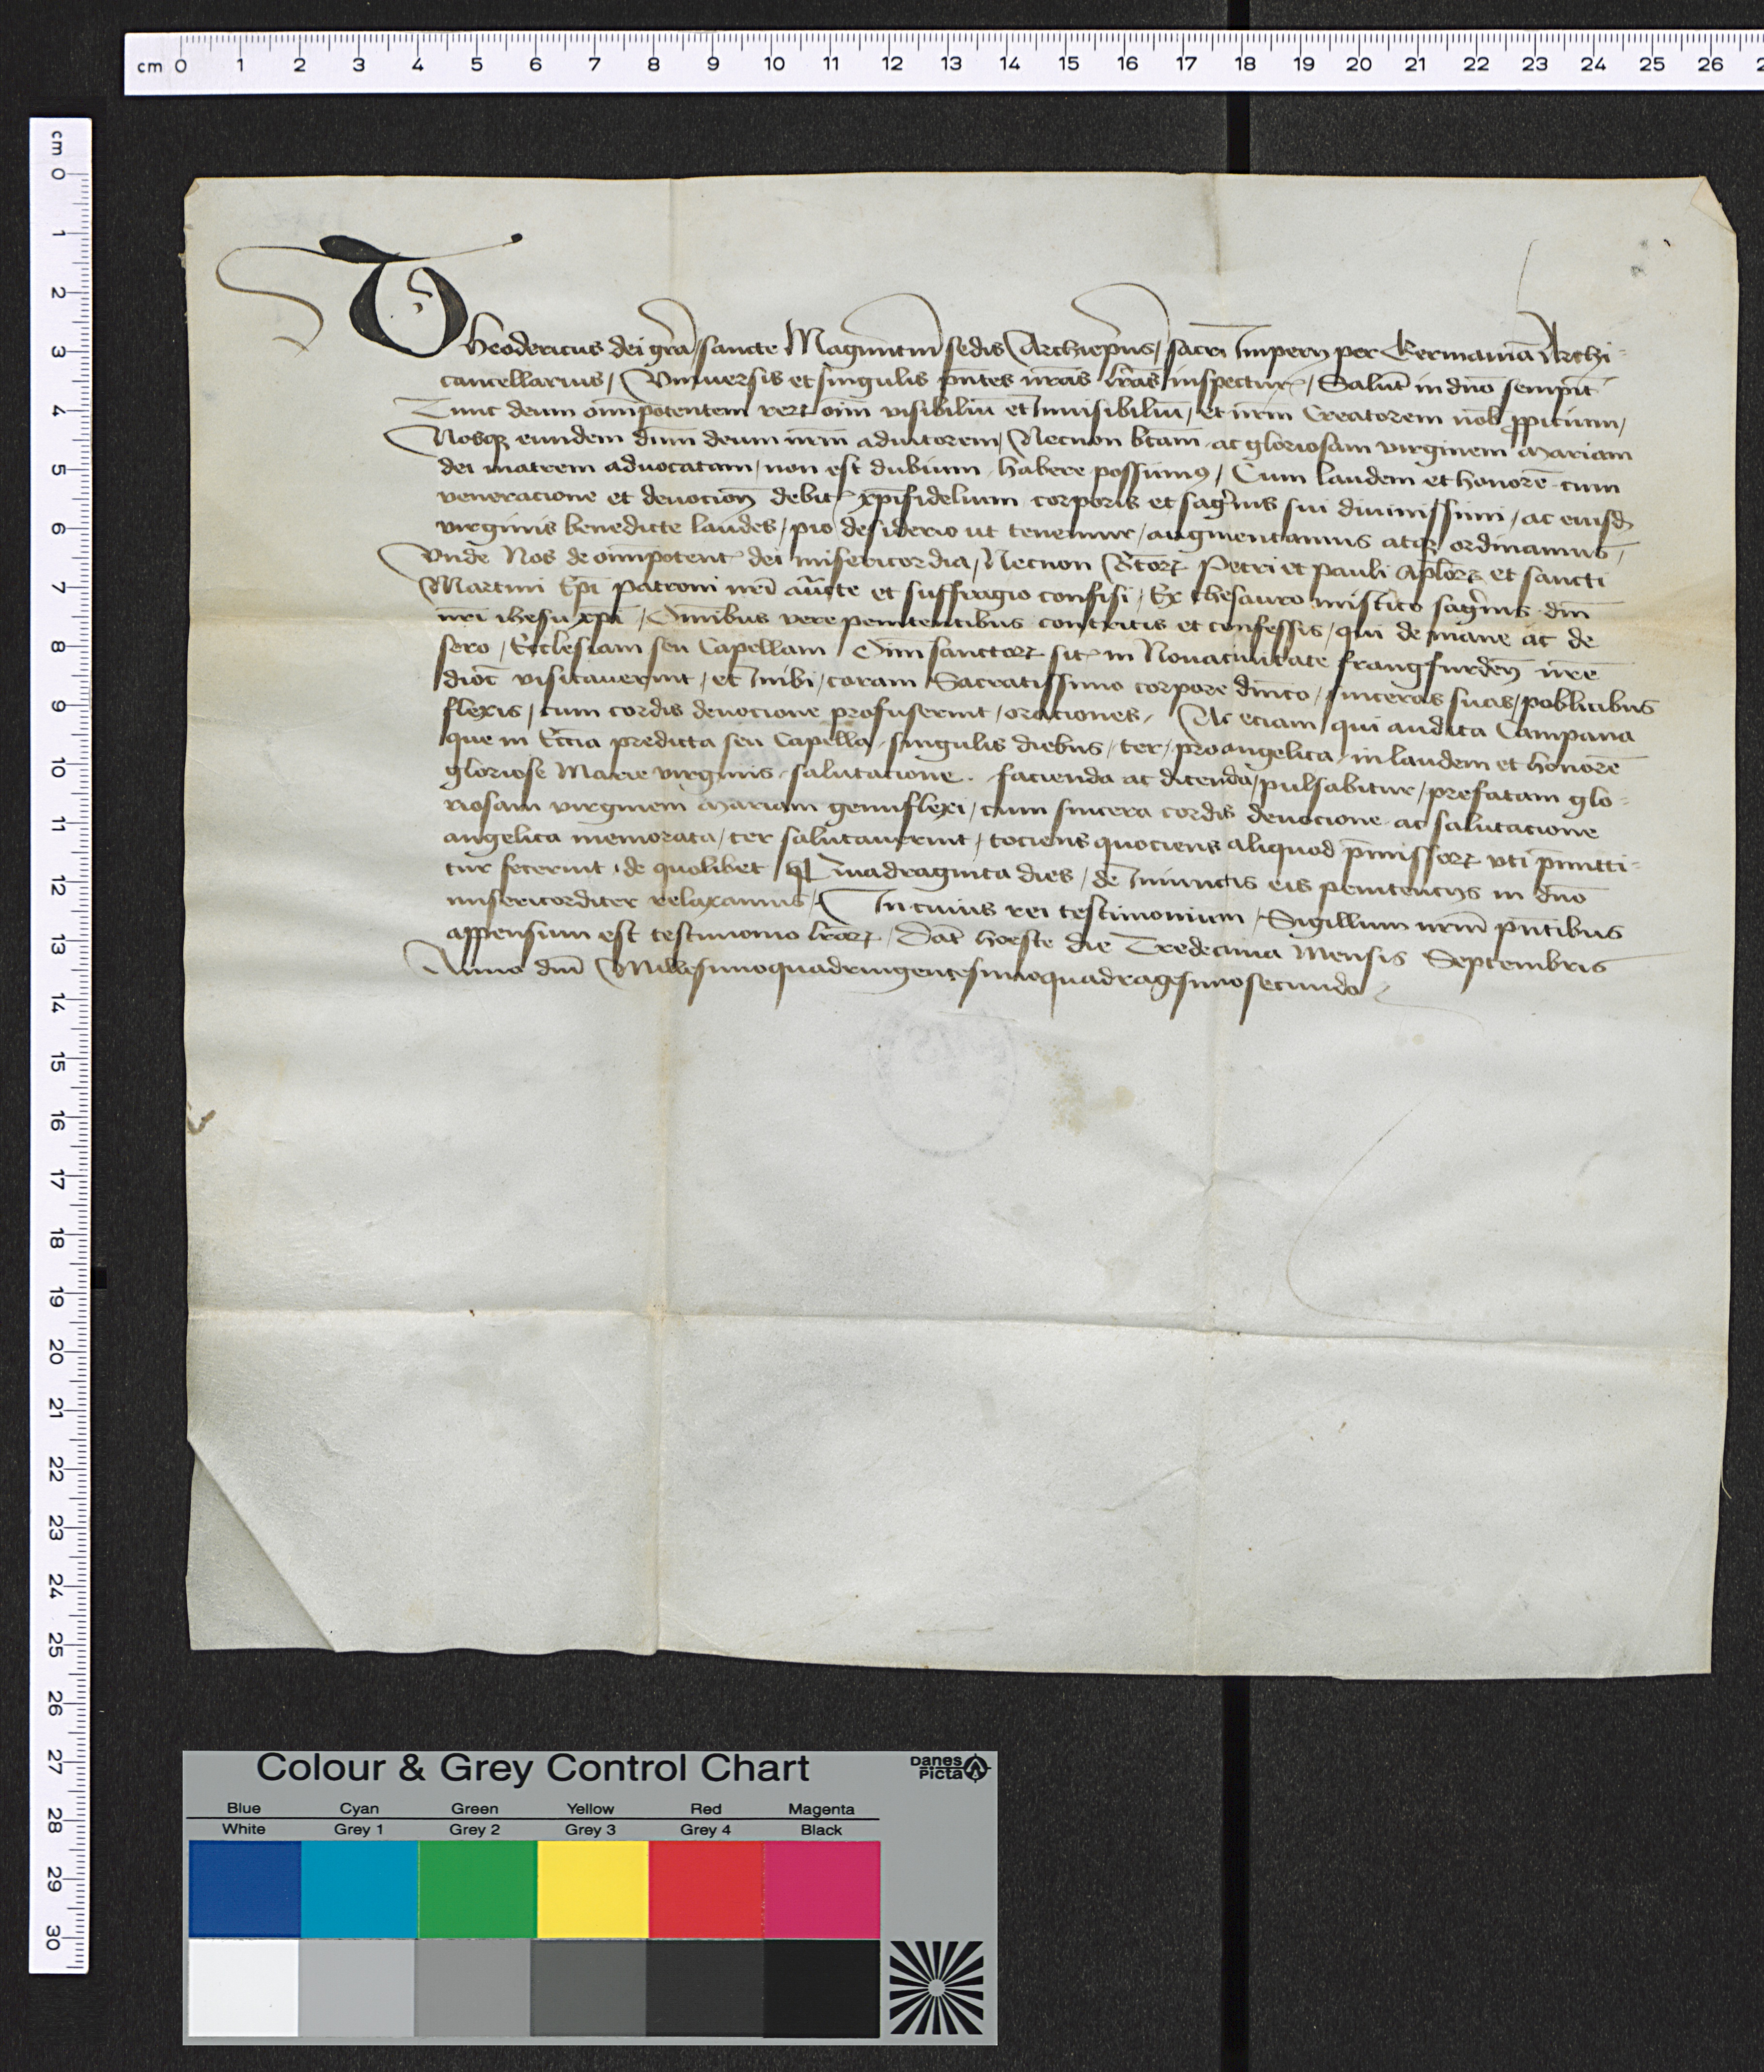 cm 0 1 2 3 4 5 6 7 8 9 10 11 12 13 14 15 16 17 18 19 20 21 22 23 24 25 26
cm 0 1 2 3 4 5 6 7 8 9 10 11 12 13 14 15 16 17 18 19 20 21 22 23 24 25 26 27 28 29 30
Theodericus dei gra͞ / sancte Maguntin͞ sedis Archiep͞us / sacri Imperij per Germania͞ Archi=
cancellarius / Vniuersis et singulis pn͞tes nr͞as lr͞as inspectur͛ / Salut͞ in dn͞o sempit͛
Tunc deum om͞ipotentem rerꝝ oim͞ visibiliu͞ et Inuisibiliu͞ / et nr͞m Creatorem nob͛ ꝓpicium /
Nosqꝫ eundem dn͞m deum nr͞m adiutorem / Necnon bt͞am ac gloriosam virginem Mariam
dei matrem aduocatam / non est dubium habere possumꝰ / Cum laudem et honore͞ cum
veneracione et deuocion͞ debit͛ xp͞ifidelium corporis et sag͛nis sui diuinissimi / ac eiusd͛
virginis benedicte laudes / pio desiderio ut tenemur / augmentamus atqꝫ ordinamus /
Vnde Nos de om͞ipotent͛ dei misericordia / Necnon Bt͞orꝝ Petri et pauli Apl͞orꝝ et sancti
Martini Ep͞i patroni nr͞i au͞cte et suffragio confisi / Ex thesauro mistico sag͛nis dn͞i
nr͞i ihesu xp͞i / Omnibus vere penitentibus contritis et confessis / qui de mane ac de
sero / Ecclesiam seu Capellam Oim͞ sanctorꝝ sit͛ in Nouaciuitate frangfurden͞ nr͞e
dioc͛ visitauerint / et Inibi / coram Sacratissimo corpore din͞co / sinceras suas / poblitibus
flexis / cum cordis deuocione profuserint / oraciones / Ac eciam / qui audita Campana
que in Ecc͞ia predicta seu Capella / singulis diebus / ter / pro angelica / in laudem et honore͞
gloriose Marie virginis / salutacione facienda ac dicenda / pulsabitur / prefatam glo=
riosam virginem Mariam genuflexi / cum sincera cordis deuocione ac salutacione
angelica memorata / ter salutauerint / tociens quociens aliquod p͞missorꝝ vti p͞mitti=
tur fecerint / de quolibet Quadraginta dies / de Iniunctis eis penitencijs in dn͞o
misericorditer relaxamus / In cuius rei testimonium / Sigillum nr͞m pn͞tibus
appensum est testimonio lr͞arꝝ / Dat͛ hoeste die Tredecima Mensis Septembris
Anno dn͞i Millesimoquadringentesimoquadragesimosecundo
Colour & Grey Control Chart
Danes Picta
Blue Cyan Green Yellow Red Magenta
White Grey 1 Grey 2 Grey 3 Grey 4 Black